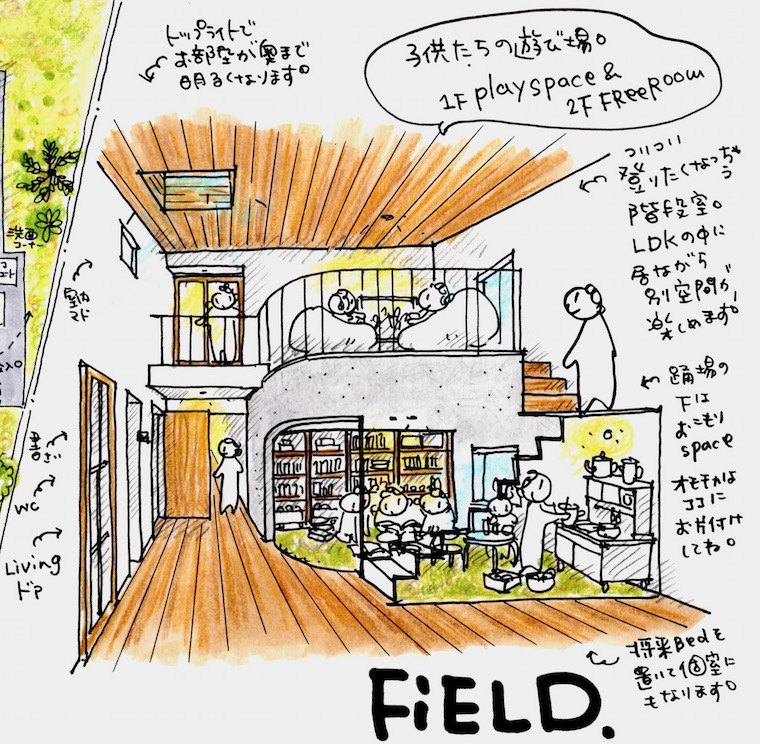 トップライトで
お部屋が奥まで
明るくなります。
子供たちの遊び場。
1F playspace &
2F FReeRoom
ついつい
登りたくなっちゃう
階段室。
LDKの中に
居ながら
別空間が、
楽しめます。
踊場の
下は
おこもり
space
オモチャは
ココに
お片付け
してね。
将来Bedを
置いて個室に
もなります。
洗面
コーナー
室内
マド
書さい
WC
Living
ドア
FiELD.